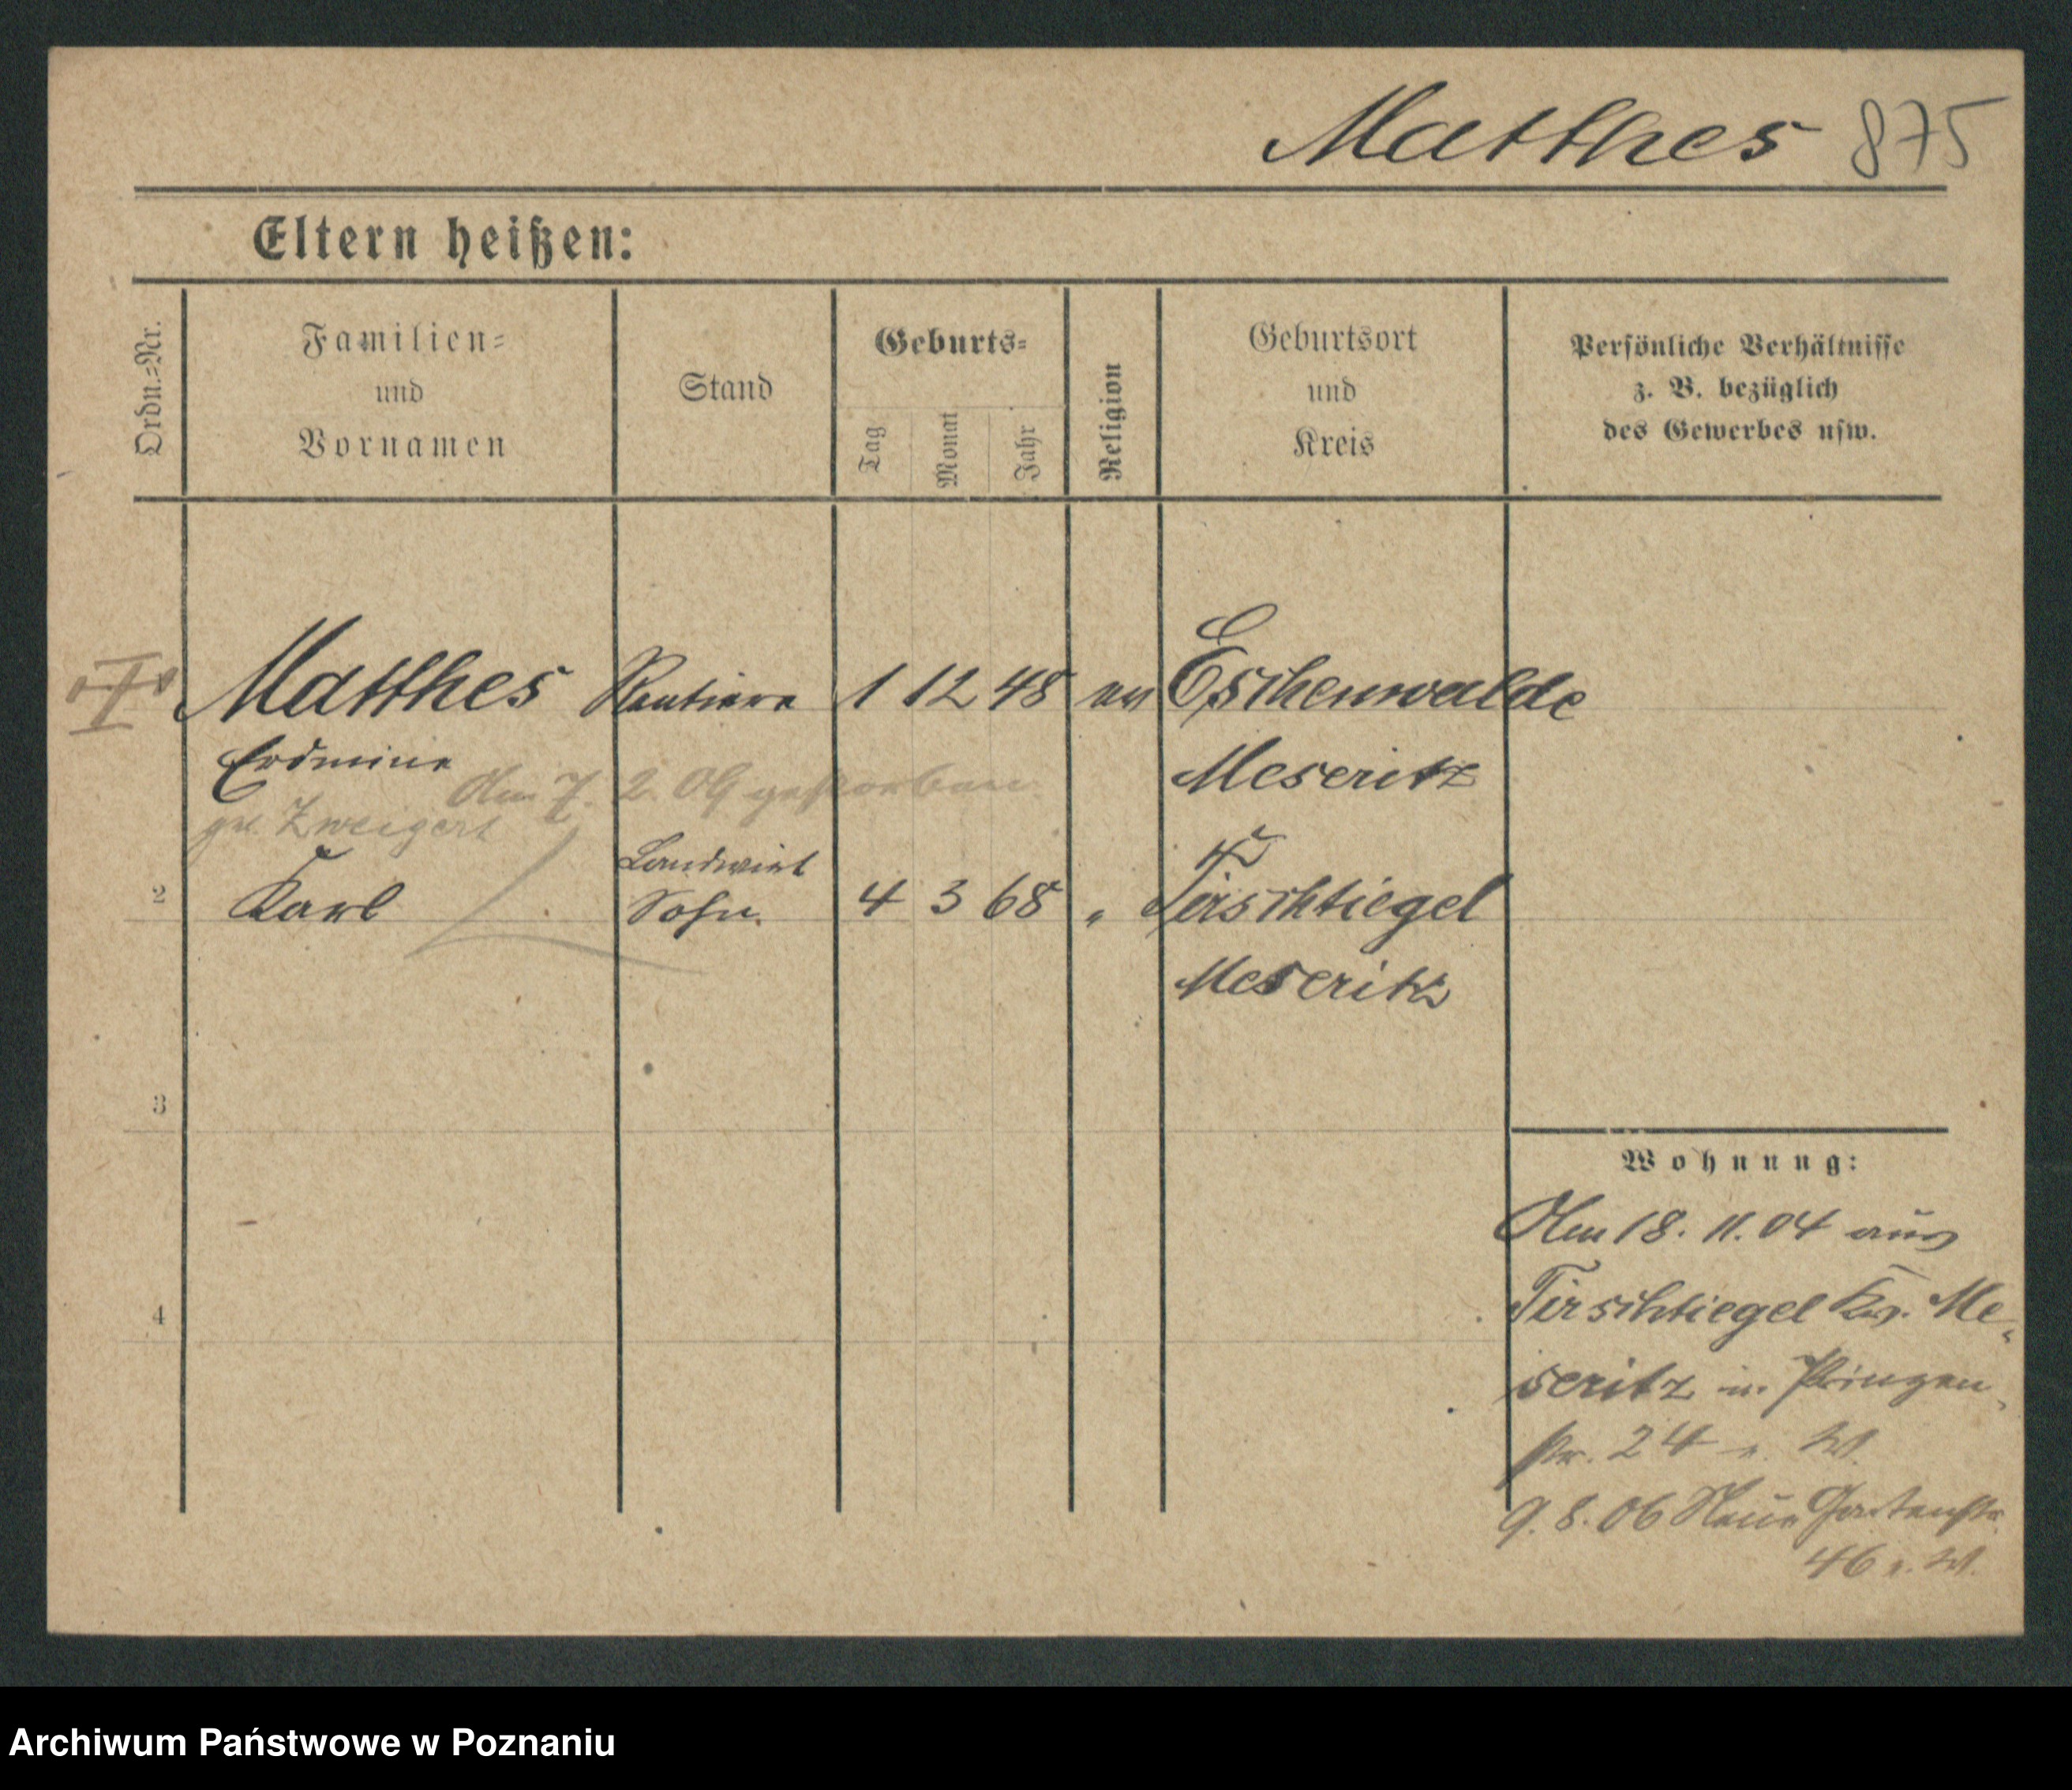 Matthes 875
Eltern heißen:
Ordn.=Nr.
Familien=
und
Vornamen
Stand
Geburts=
Tag
Monat
Jahr
Religion
Geburtsort
und
Kreis
Persönliche Verhältnisse
z. B. bezüglich
des Gewerbes usw.
Matthes Rentiere 1 12 48 ev Eschenwalde
Erdmine Meseritz
Am 7. 2. 09 gestorben
geb. Zweigert
Landwirt
2 Karl Sohn. 4 3 68 " Tirschtiegel
Meseritz
3
Wohnung:
Am 18. 11. 04 aus
4
Tirschtiegel Krs. Me-
seritz n. Prinzen-
str. 24 v. W.
9. 8. 06 Neue Gartenstr.
46 v. W.
Archiwum Państwowe w Poznaniu